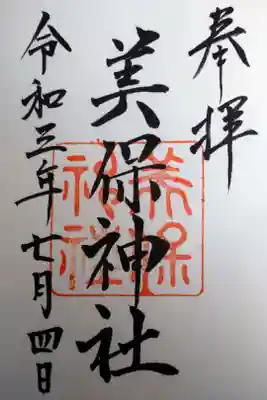 奉拝
美保神社
美保
神社
令和三年七月四日